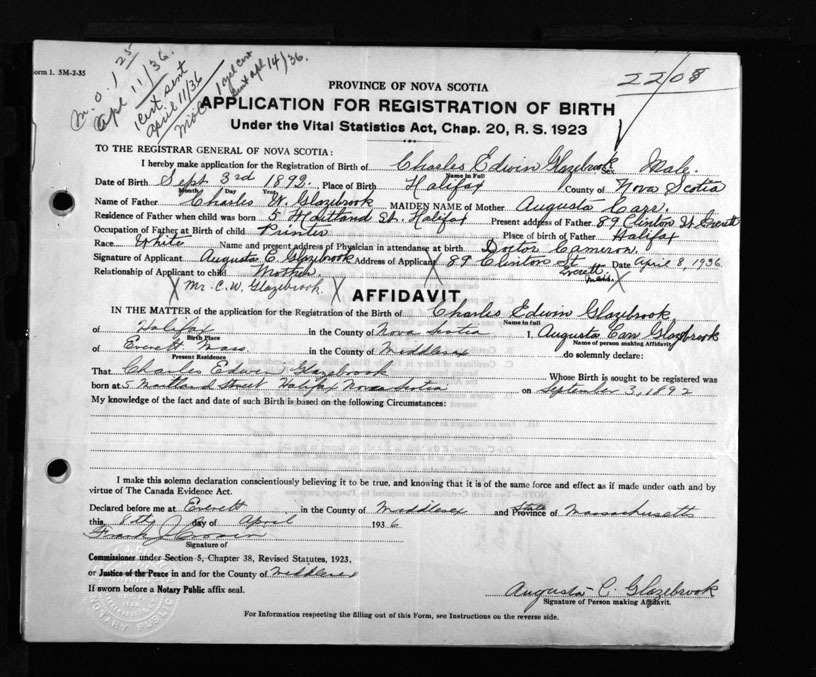 Form 1. 5M-2-35
M.O. 1 25
Apl 11/36.
1 Cert. sent
April 11/36
2208
PROVINCE OF NOVA SCOTIA
APPLICATION FOR REGISTRATION OF BIRTH
Under the Vital Statistics Act, Chap. 20, R. S. 1923
TO THE REGISTRAR GENERAL OF NOVA SCOTIA:
I hereby make application for the Registration of Birth of Charles Edwin Glazebrook Sex Male.
Name in Full
Date of Birth Sept. 3rd 1892. Place of Birth Halifax County of Nova Scotia
Month Day Year
Name of Father Charles W. Glazebrook MAIDEN NAME of Mother Augusta Carr.
Residence of Father when child was born 5 Maitland St. Halifax Present address of Father 89 Clinton St. Everett
Occupation of Father at Birth of child Printer Place of birth of Father Halifax
Race White Name and present address of Physician in attendance at birth Doctor Cameron.
Signature of Applicant Augusta C. Glazebrook Address of Applicant X 89 Clinton St Everett Mass. Date April 8, 1936
Relationship of Applicant to child Mother. X
X Mr. C. W. Glazebrook. X
AFFIDAVIT
IN THE MATTER of the application for the Registration of the Birth of Charles Edwin Glazebrook
Name in full
of Halifax in the County of Nova Scotia I, Augusta Carr Glazebrook
Birth Place Name of person making Affidavit
of Everett Mass. in the County of Middlesex do solemnly declare:
Present Residence
That Charles Edwin Glazebrook Whose Birth is sought to be registered was
born at 5 Maitland Street Halifax Nova Scotia on September 3, 1892
My knowledge of the fact and date of such Birth is based on the following Circumstances:
I make this solemn declaration conscientiously believing it to be true, and knowing that it is of the same force and effect as if made under oath and by
virtue of The Canada Evidence Act.
Declared before me at Everett in the County of Middlesex and State Province of Massachusetts
this 8th day of April 1936
Frank J. Cronin
Signature of
Commissioner under Section 5, Chapter 38, Revised Statutes, 1923,
or Justice of the Peace in and for the County of Middlesex
If sworn before a Notary Public affix seal.
Augusta C. Glazebrook
Signature of Person making Affidavit.
For Information respecting the filling out of this Form, see Instructions on the reverse side.